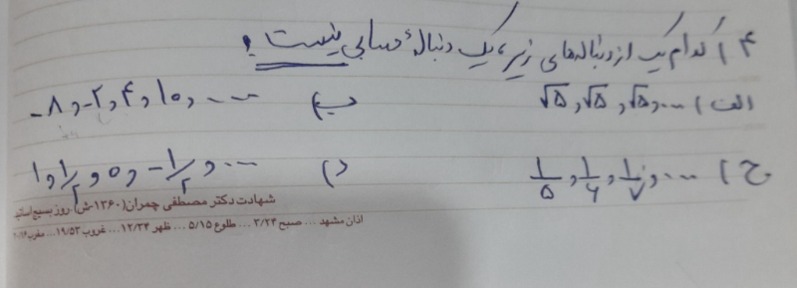 ۴) کدام یک از دنباله‌های زیر، یک دنبالهٔ حسابی نیست؟
الف) √۵, √۵, √۵, ...
ب) -۸, -۲, ۴, ۱۰, ...
ج) ۱/۵, ۱/۶, ۱/۷, ...
د) ۱, ۱/۲, ۰, -۱/۲, ...
شهادت دکتر مصطفی چمران (۱۳۶۰-ش) روز بسیج اساتید
اذان مشهد ... صبح ۳/۲۴ ... طلوع ۵/۱۵ ... ظهر ۱۲/۳۴ ... غروب ۱۹/۵۳ ... مغرب